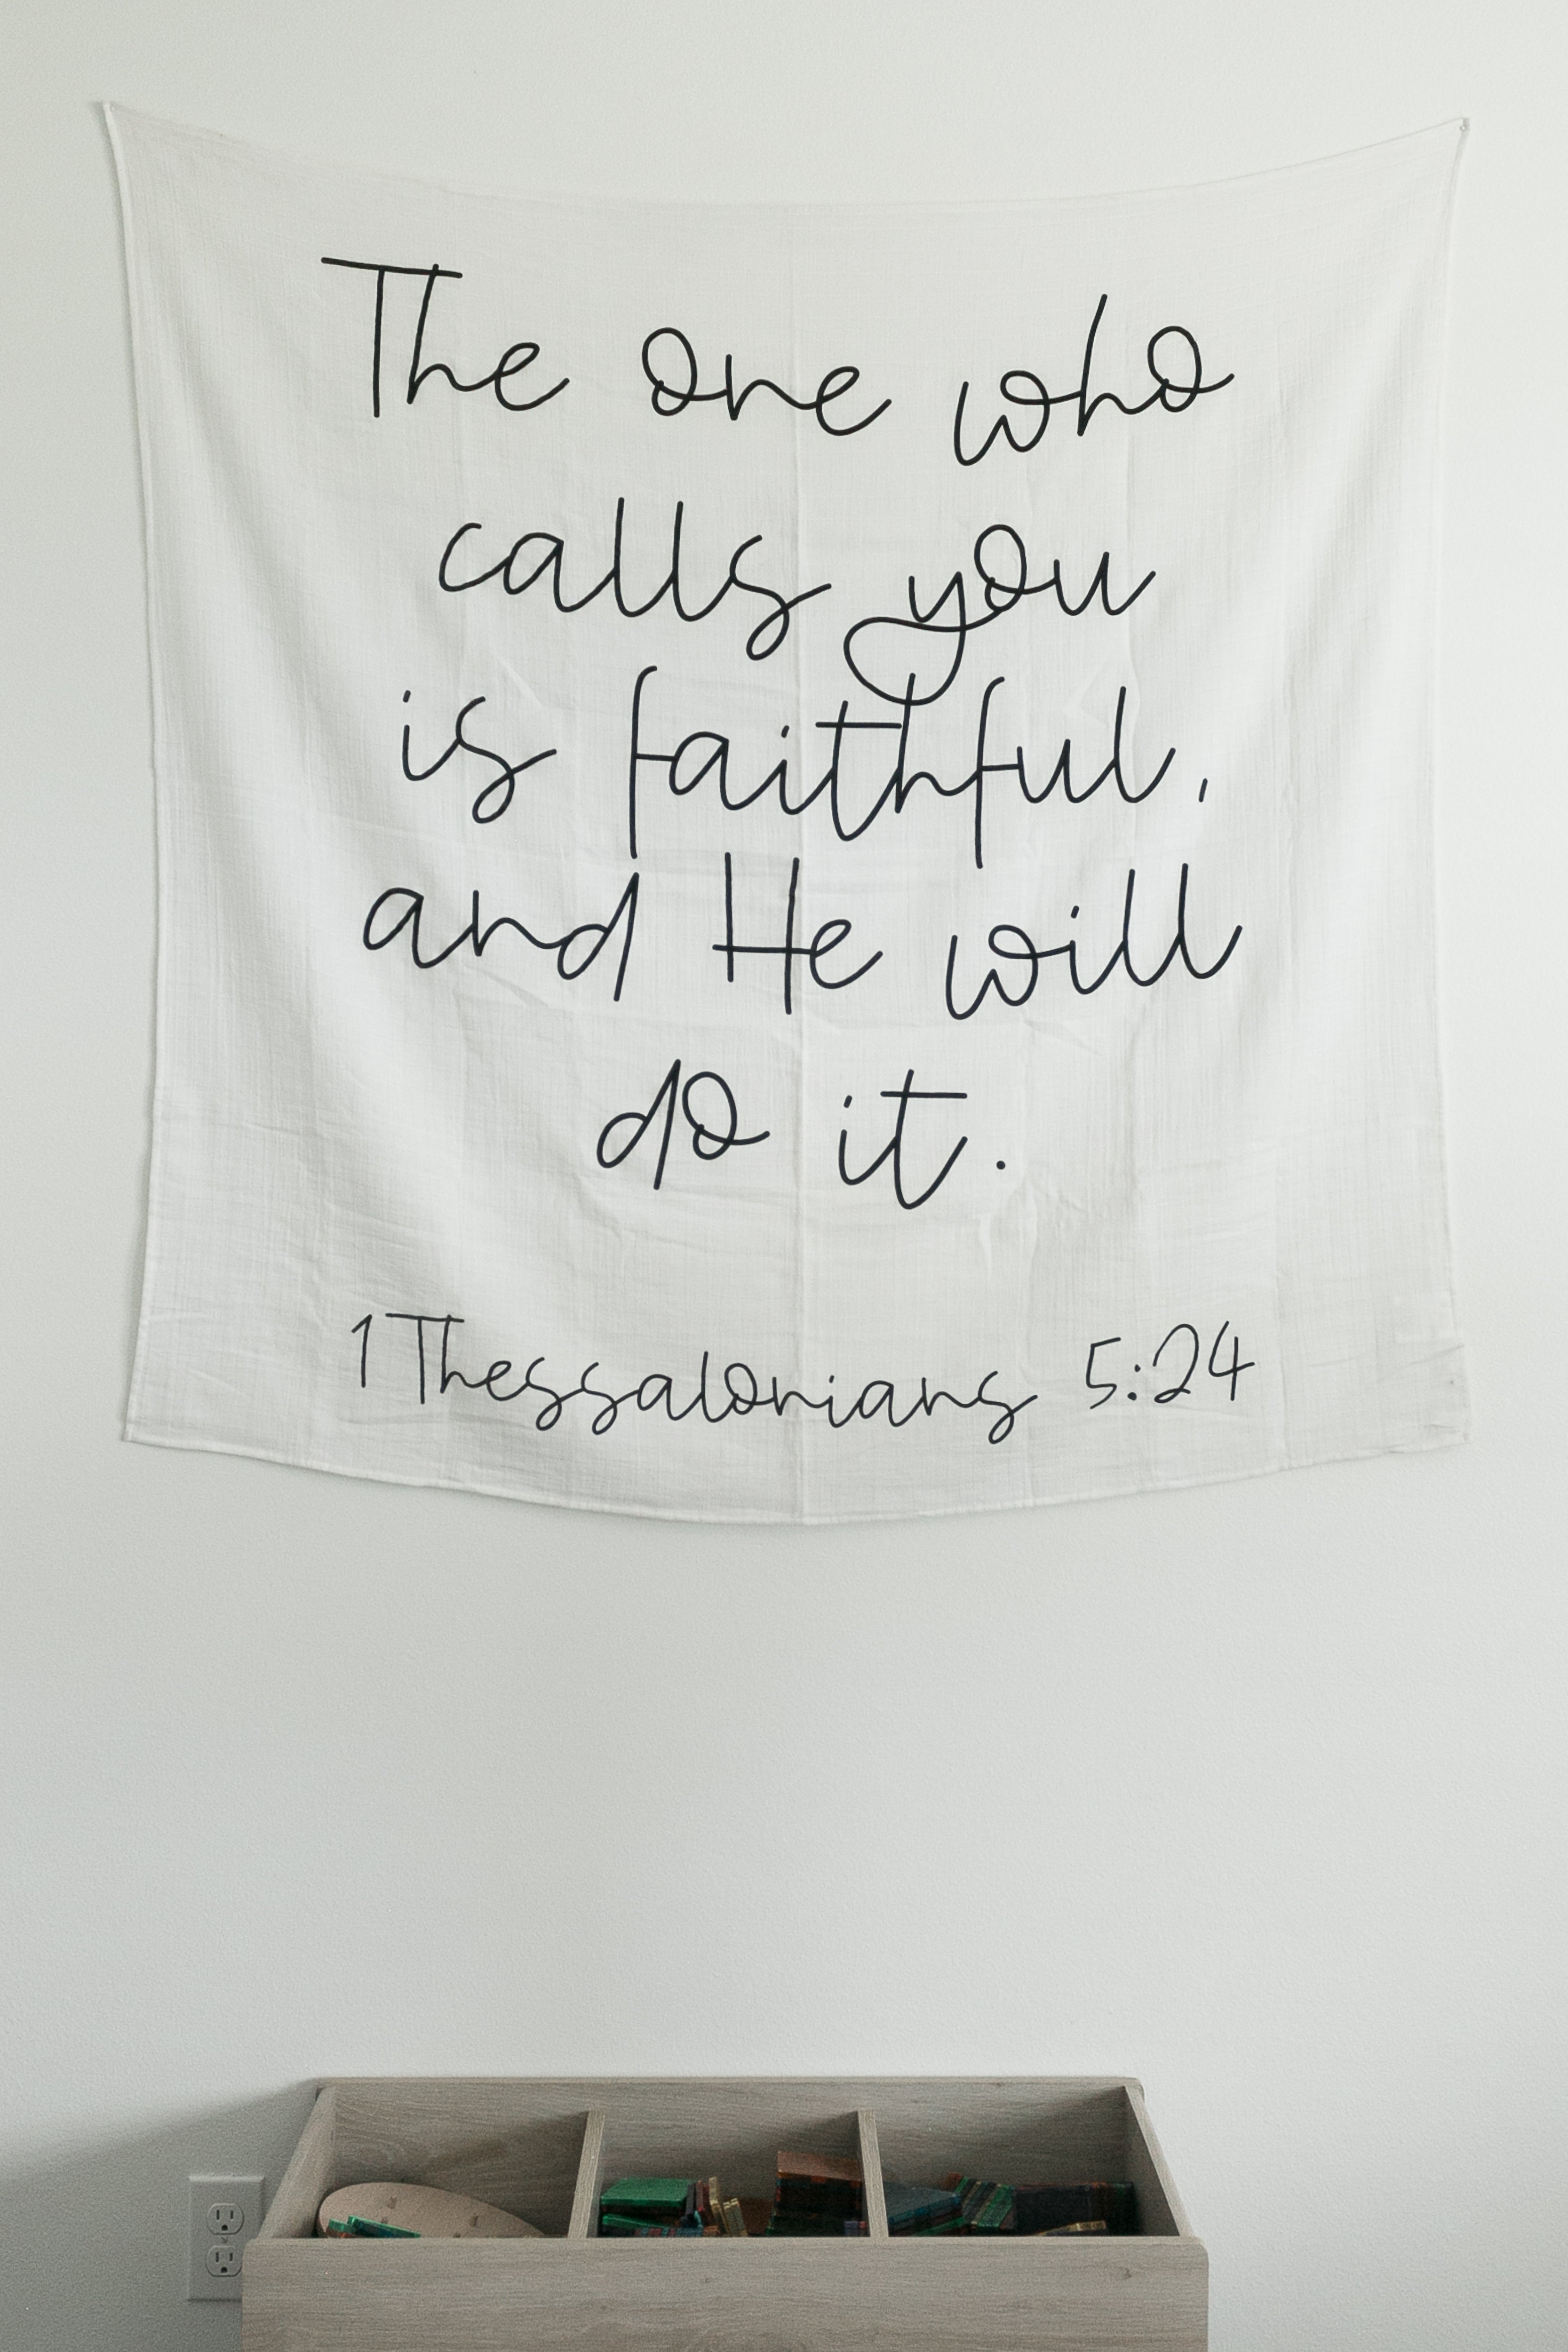 The one who
calls you
is faithful,
and He will
do it.
1 Thessalonians 5:24